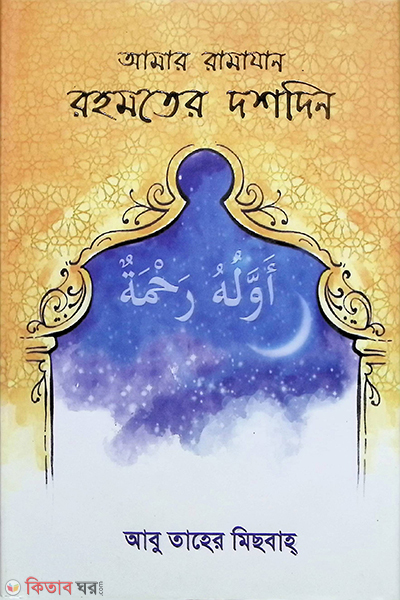 আমার রামাযান
রহমতের দশদিন
أَوَّلُهُ رَحْمَةٌ
আবু তাহের মিছবাহ্
কিতাব ঘর.com